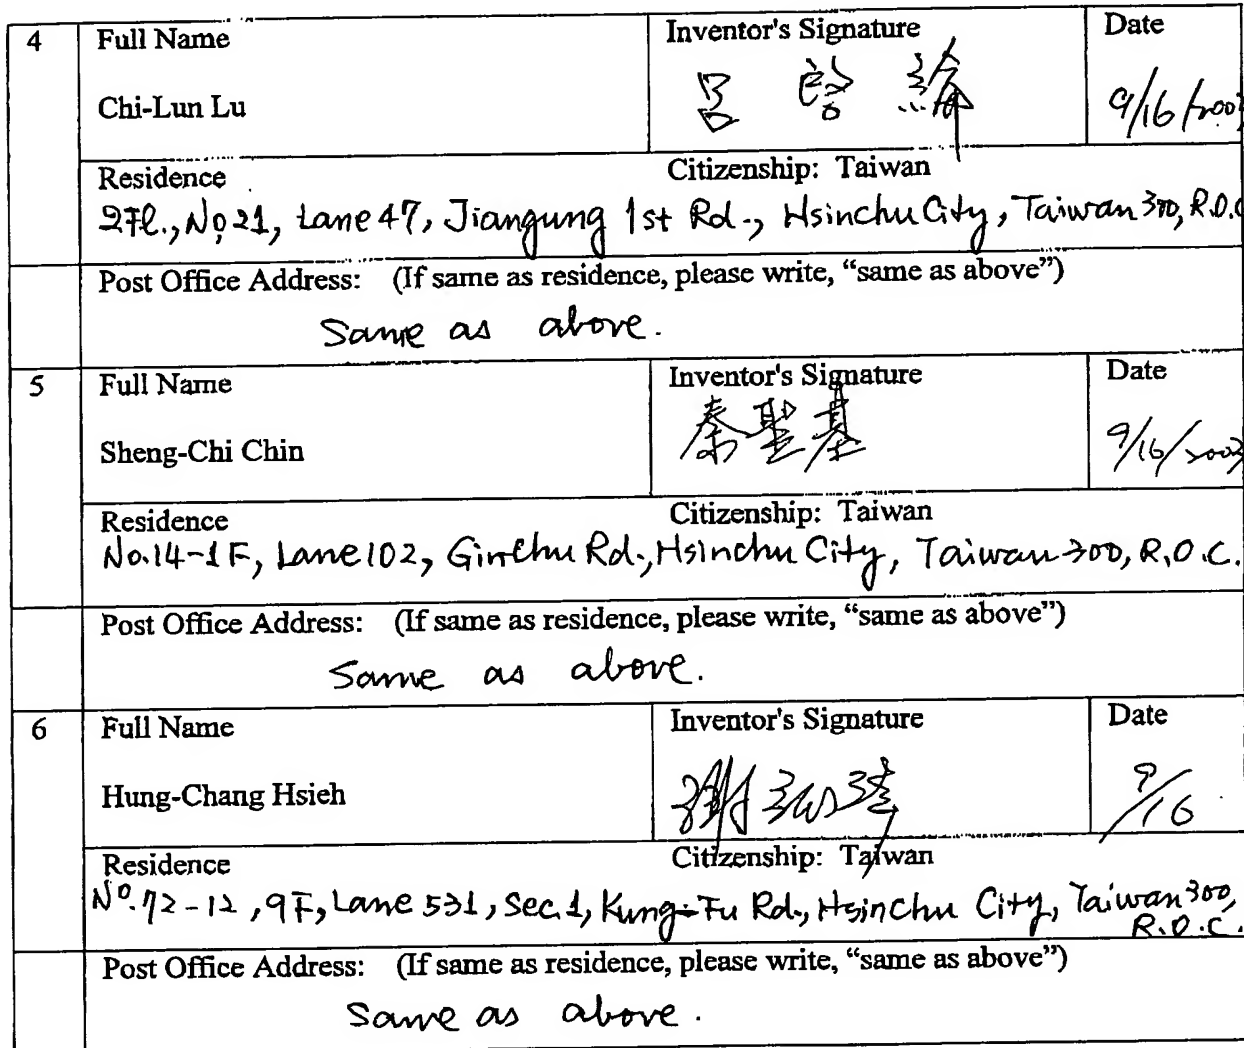 4 Full Name Inventor's Signature Date
Chi-Lun Lu 呂 啓 綸 9/16/2003
Residence Citizenship: Taiwan
2Fl., No 21, Lane 47, Jiangung 1st Rd., Hsinchu City, Taiwan 300, R.O.C
Post Office Address: (If same as residence, please write, “same as above”)
Same as above.
5 Full Name Inventor's Signature Date
Sheng-Chi Chin 秦聖基 9/16/2003
Residence Citizenship: Taiwan
No.14-1F, Lane 102, Ginchu Rd., Hsinchu City, Taiwan 300, R.O.C.
Post Office Address: (If same as residence, please write, “same as above”)
Same as above.
6 Full Name Inventor's Signature Date
Hung-Chang Hsieh 謝 9/16
Residence Citizenship: Taiwan
No.72-12, 9F, Lane 531, Sec.1, Kung-Fu Rd., Hsinchu City, Taiwan 300,
R.O.C.
Post Office Address: (If same as residence, please write, “same as above”)
Same as above.